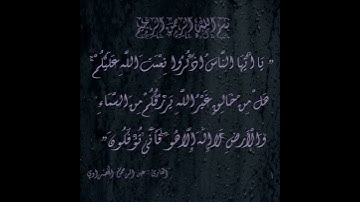 بسم الله الرحمن الرحيم
" يَا أَيُّهَا النَّاسُ اذْكُرُوا نِعْمَتَ اللَّهِ عَلَيْكُمْ ۚ
هَلْ مِنْ خَالِقٍ غَيْرُ اللَّهِ يَرْزُقُكُم مِّنَ السَّمَاءِ
وَالْأَرْضِ ۚ لَا إِلَٰهَ إِلَّا هُوَ ۖ فَأَنَّىٰ تُؤْفَكُونَ "
القارئ : عبد الرحمن